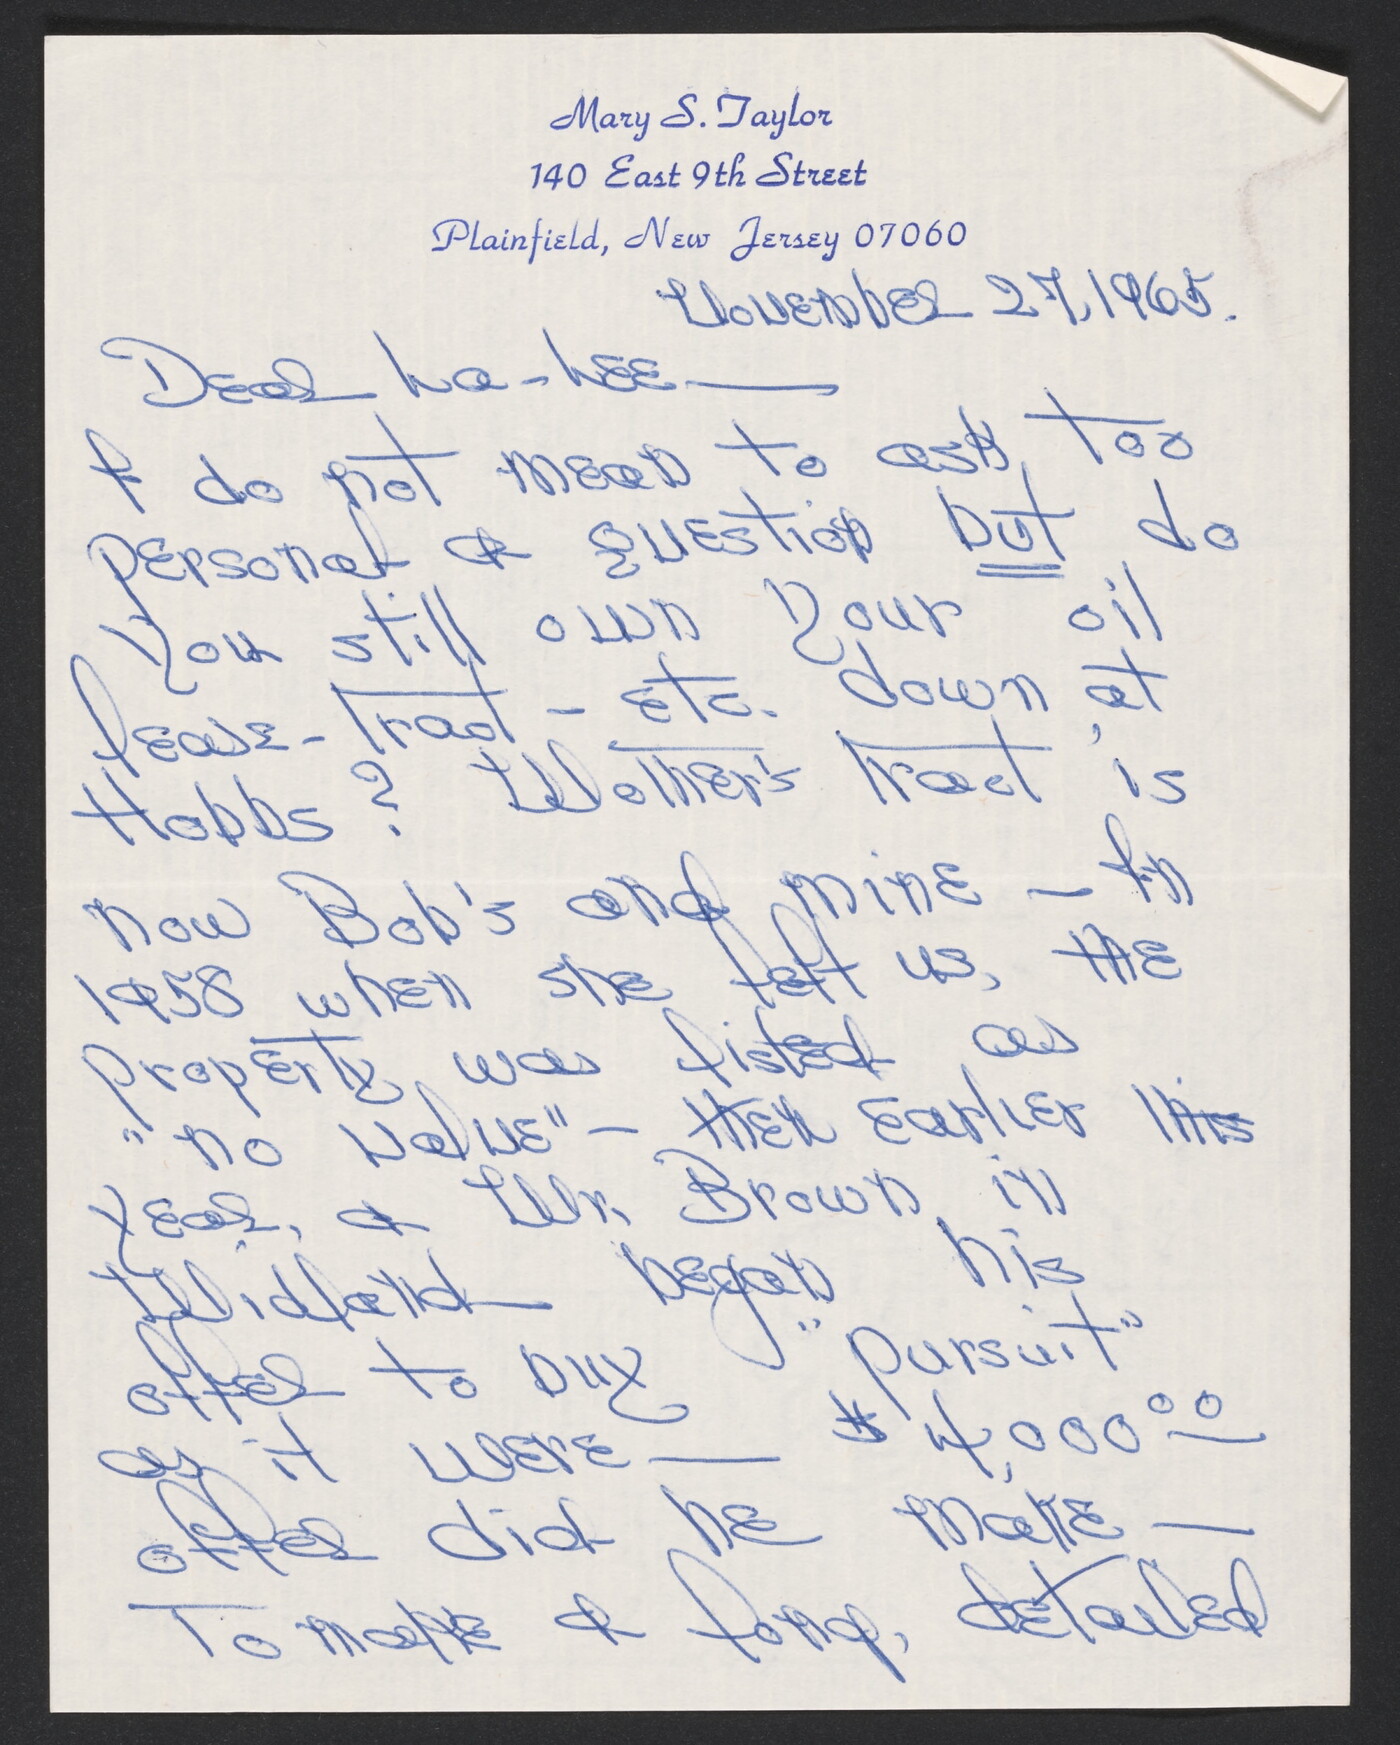 Mary S. Taylor
140 East 9th Street
Plainfield, New Jersey 07060
November 27, 1965.
Dear La-Lee —
I do not mean to ask too
personal a question but do
you still own your oil
lease - tract - etc. down at
Hobbs? Mother's tract is
now Bob's and mine — In
1958 when she left us, the
property was listed as
"no value" — then earlier this
year, a Mr. Brown in
Midland began his
offer to buy "pursuit"
as it were — $4,000.00
offer did he make —
To make a long, detailed